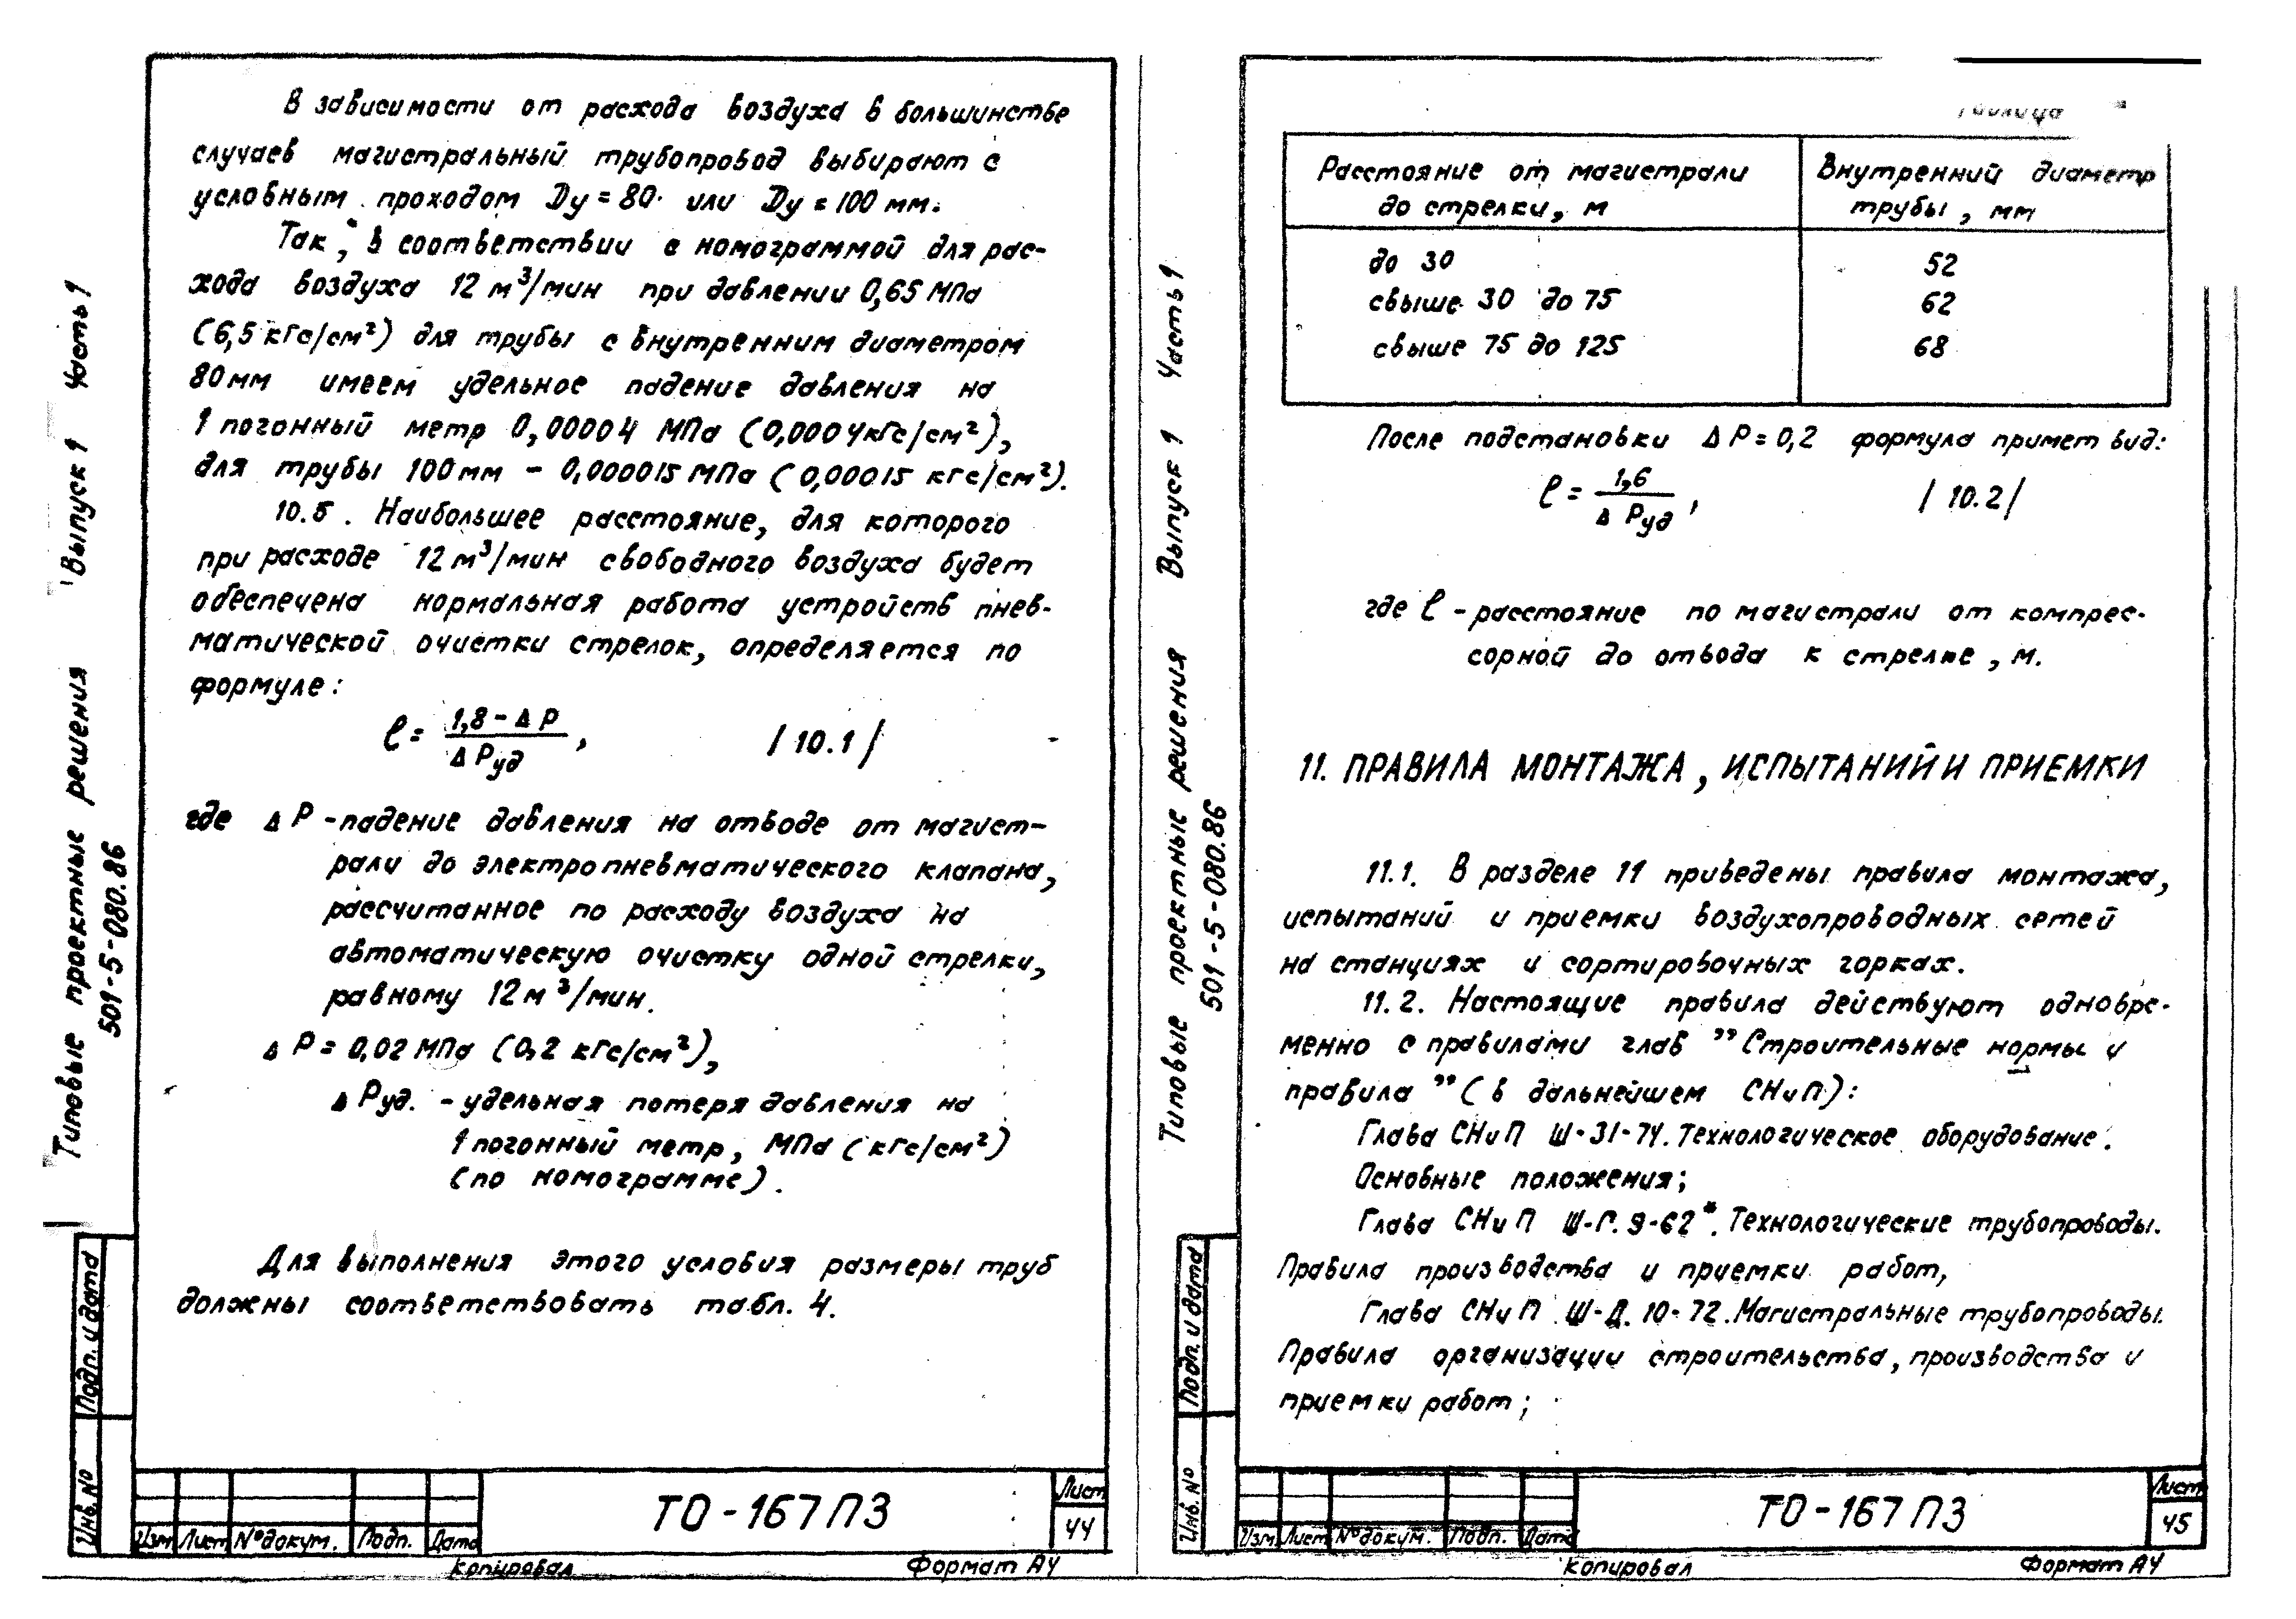 В зависимости от расхода воздуха в большинстве
случаев магистральный трубопровод выбирают с
условным проходом Ду = 80 или Ду = 100 мм.
Так, в соответствии с номограммой для рас-
хода воздуха 12 м³/мин при давлении 0,65 МПа
(6,5 кгс/см²) для трубы с внутренним диаметром
80 мм имеем удельное падение давления на
1 погонный метр 0,00004 МПа (0,0004 кгс/см²),
для трубы 100 мм - 0,000015 МПа (0,00015 кгс/см²).
10.5. Наибольшее расстояние, для которого
при расходе 12 м³/мин свободного воздуха будет
обеспечена нормальная работа устройств пнев-
матической очистки стрелок, определяется по
формуле:
ℓ = (1,8 - Δ P) / (Δ Руд), /10.1/
где Δ P - падение давления на отводе от магист-
рали до электропневматического клапана,
рассчитанное по расходу воздуха на
автоматическую очистку одной стрелки,
равному 12 м³/мин.
Δ P = 0,02 МПа (0,2 кгс/см²),
Δ Руд. - удельная потеря давления на
1 погонный метр, МПа (кгс/см²)
(по номограмме).
Для выполнения этого условия размеры труб
должны соответствовать табл. 4.
Типовые проектные решения Выпуск 1 Часть 1
501-5-080.86
Подп. и дата
Инв. №
Изм Лист № докум. Подп. Дата
ТО-167 ПЗ
Лист
44
Копировал Формат А4
Таблица
Расстояние от магистрали Внутренний диаметр
до стрелки, м трубы, мм
до 30 52
свыше 30 до 75 62
свыше 75 до 125 68
После подстановки Δ P = 0,2 формула примет вид:
ℓ = 1,6 / (Δ Руд), /10.2/
где ℓ - расстояние по магистрали от компрес-
сорной до отвода к стрелке, м.
11. ПРАВИЛА МОНТАЖА, ИСПЫТАНИЙ И ПРИЕМКИ
11.1. В разделе 11 приведены правила монтажа,
испытаний и приемки воздухопроводных сетей
на станциях и сортировочных горках.
11.2. Настоящие правила действуют одновре-
менно с правилами глав "Строительные нормы и
правила" (в дальнейшем СНиП):
Глава СНиП Ш-31-74. Технологическое оборудование.
Основные положения;
Глава СНиП Ш-Г. 9-62*. Технологические трубопроводы.
Правила производства и приемки работ,
Глава СНиП Ш-Д. 10-72. Магистральные трубопроводы.
Правила организации строительства, производства и
приемки работ;
Типовые проектные решения Выпуск 1 Часть 1
501-5-080.86
Подп. и дата
Инв. №
Изм. Лист № докум. Подп. Дата
ТО-167 ПЗ
Лист
45
Копировал Формат А4